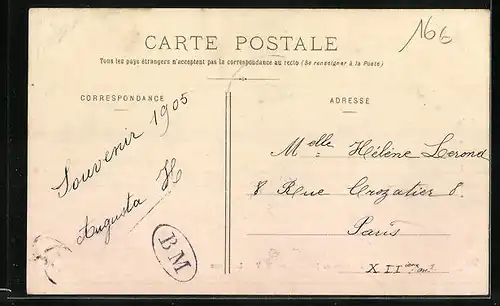 166
CARTE POSTALE
Tous les pays étrangers n'acceptent pas la correspondance au recto (Se renseigner à la Poste)
CORRESPONDANCE
ADRESSE
Souvenir 1905
Augusta H
BM
Melle Hélène Lerond
8 Rue Crozatier 8.
Paris
XII